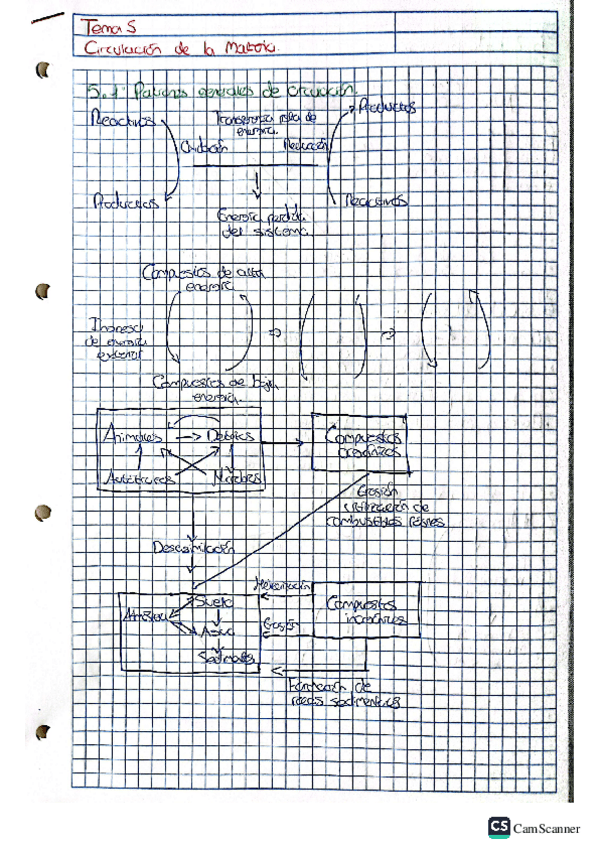 Tema 5
Circulación de la Materia.
5.1 Patrones generales de circulación.
Reactivos
Transferencia de
energía.
Productos
Oxidación
Reducción
Productos
Reactivos
Energía perdida
del sistema
Compuestos de alta
energía
Ingreso
de energía
externa
Compuestos de baja
energía.
Animales
Detritos
Compuestos
orgánicos
Autótrofos
Erosión
combustibles fósiles
Descomposición
Meteorización
Suelo
Compuestos
Agua
Erosión
Sedimentos
Formación de
rocas sedimentarias
CS CamScanner